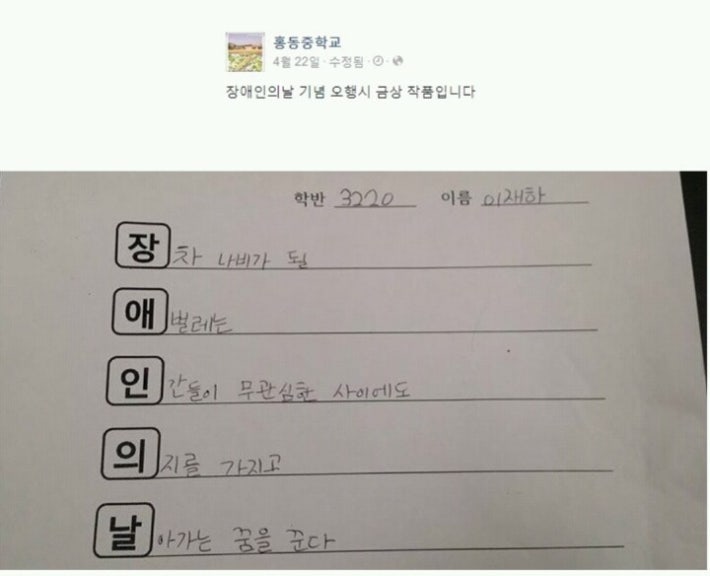 홍동중학교
4월 22일 · 수정됨 ·
장애인의날 기념 오행시 금상 작품입니다
학반 3220 이름 이재하
장차 나비가 될
애벌레는
인간들이 무관심한 사이에도
의지를 가지고
날아가는 꿈을 꾼다